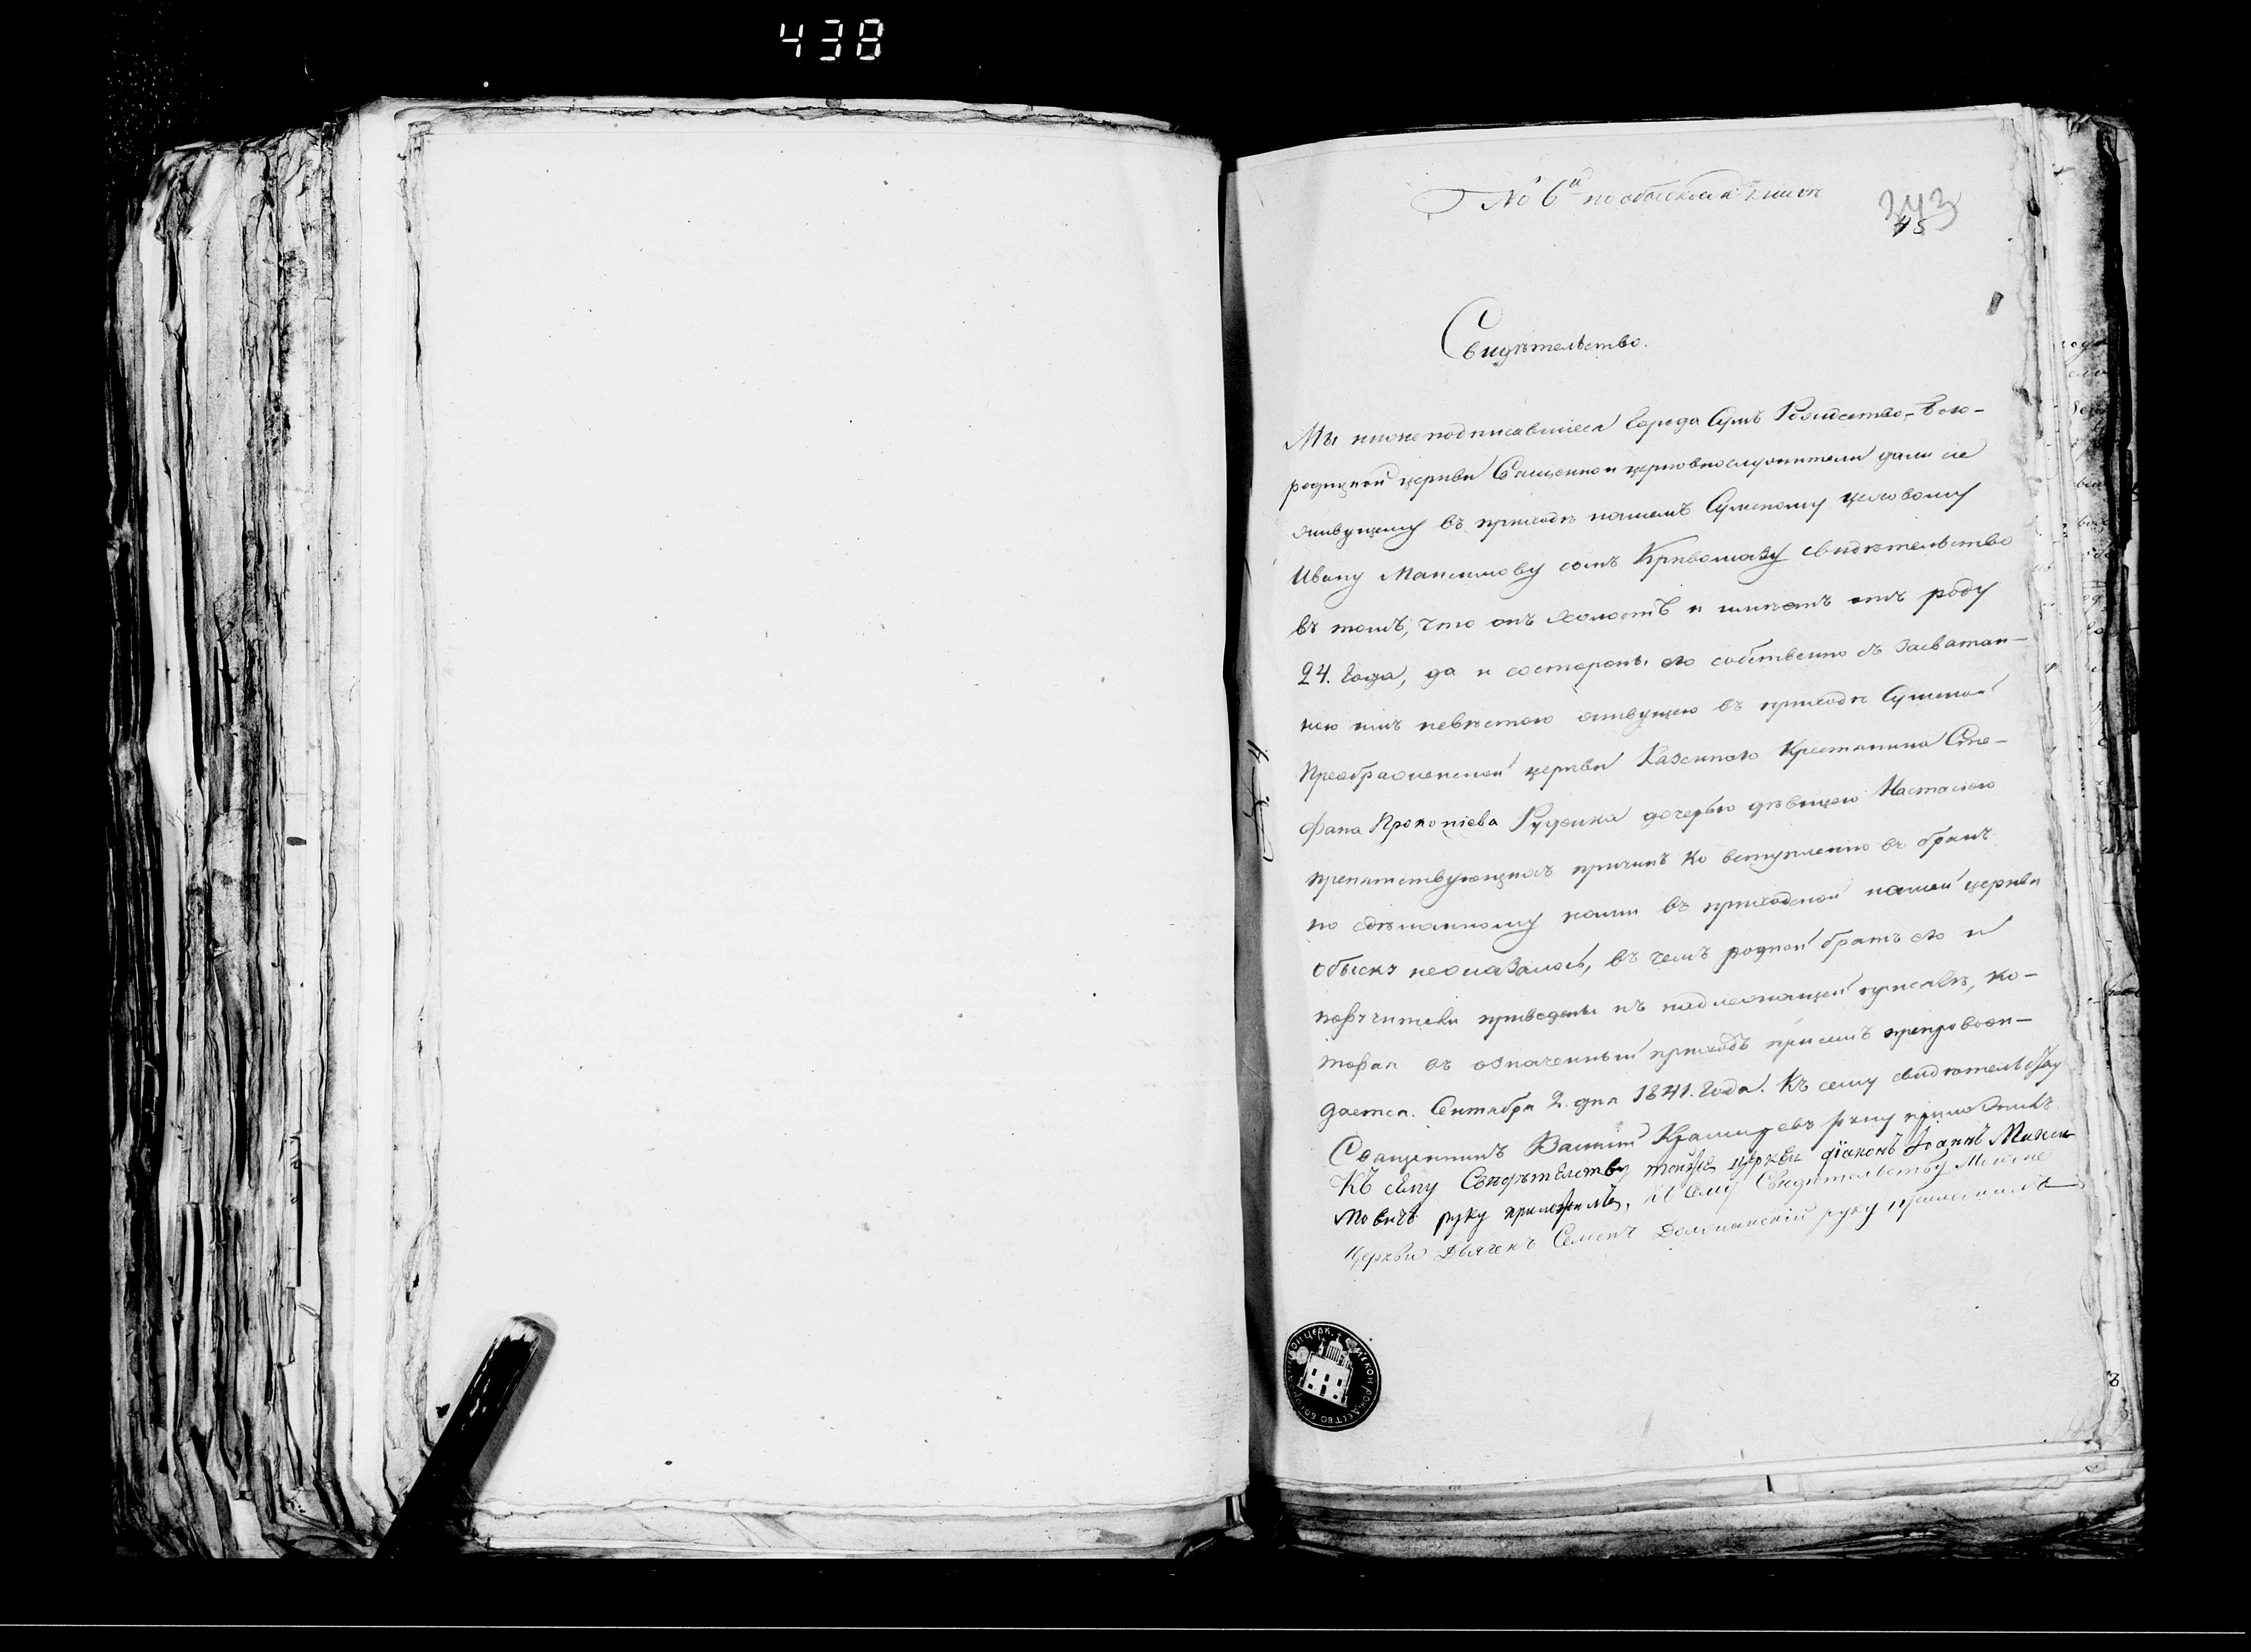 438
№ 6й по обыскной книгѣ
343
45
Свидѣтельство.
Мы нижеподписавшіеся города Сумъ Рождество-Бого-
родицкой церкви Священно и церковнослужители дали сіе
живущему въ приходѣ нашемъ Сумскому цеховому
Ивану Максимову сыну свидѣтельство
въ томъ, что онъ холостъ и имѣетъ отъ роду
24. года, да и состороны его собственно съ засватан-
ною имъ невѣстою живущею въ приходѣ Сумской
Преображенской церкви Казеннаго Крестянина Сте-
фана Прокопіева Руденка дочерью дѣвицею Настасіею
препятствующихъ причинъ ко вступленію въ бракъ
по сдѣланному нами въ приходской нашей церкви
обыску неоказалось, въ чемъ родной братъ его и
поручители приведены къ надлежащей присягѣ, ко-
торая въ означенный приходъ при семъ препровож-
дается. Сентября 2. дня 1841. года. Къ сему свидѣтельству
Священникъ Василій руку приложилъ
Къ сему Свидѣтельству тойже церкви діаконъ Іоаннъ Макси-
мовичъ руку приложилъ, къ сему Свидѣтельству тойже
Церкви Дьячекъ Семенъ руку приложилъ